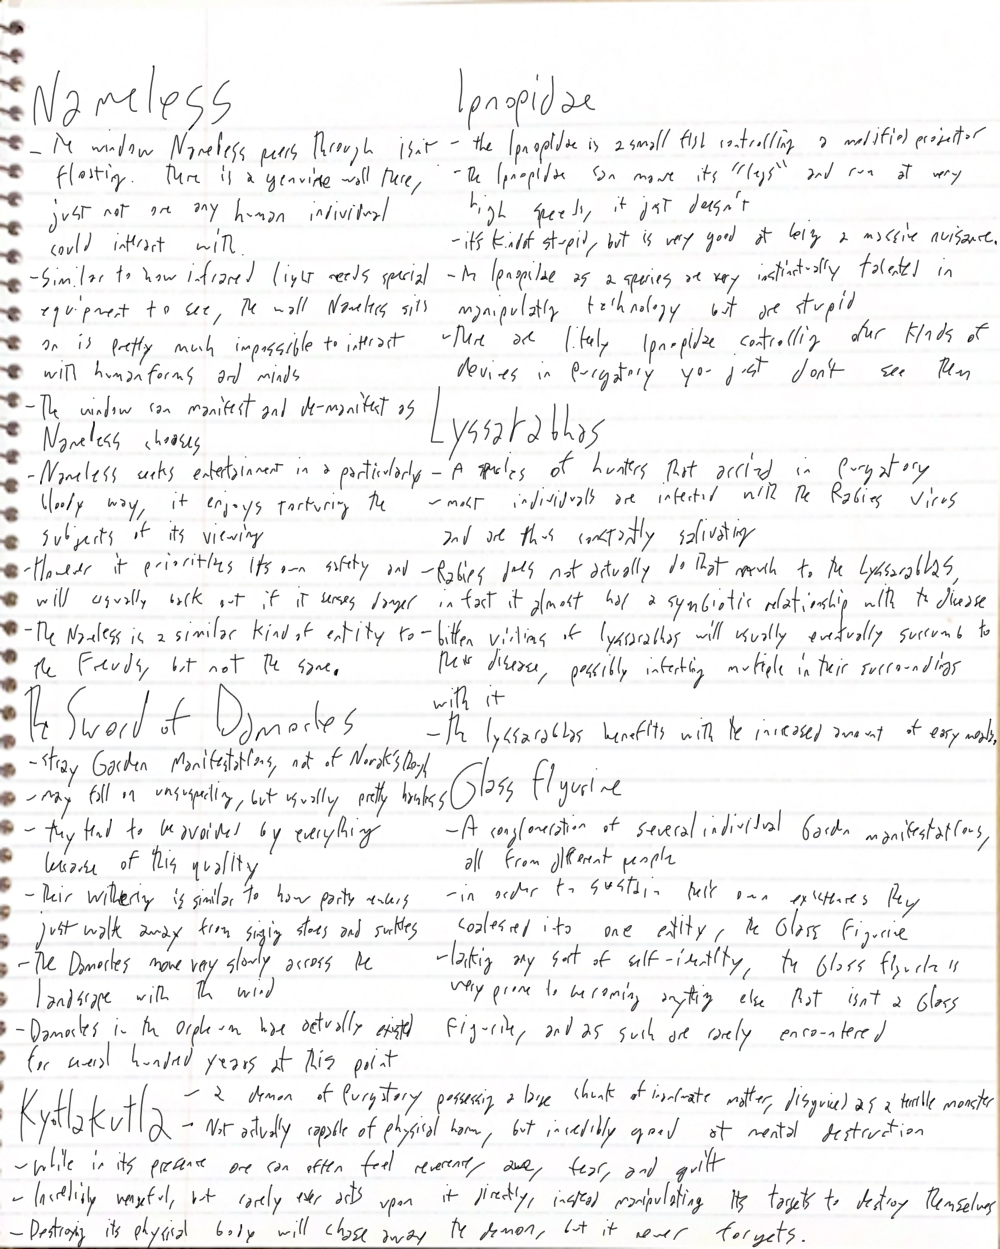 Nameless
- The window Nameless peers through isn't
floating. There is a genuine wall there,
just not one any human individual
could interact with.
- Similar to how infrared light needs special
equipment to see, the wall Nameless sits
on is pretty much impossible to interact
with human forms and minds
- The window can manifest and de-manifest as
Nameless chooses
- Nameless seeks entertainment in a particularly
bloody way, it enjoys torturing the
subjects of its viewing
- However it prioritizes its own safety and
will usually back out if it senses danger
- The Nameless is a similar kind of entity to
the Freuds, but not the same.
The Sword of Damocles
- stray Garden Manifestations, not of Norak's
- may fall on unsuspecting, but usually pretty harmless
- they tend to be avoided by everything
because of this quality
- Their withering is similar to how party
just walk away from
- The Damocles move very slowly across the
landscape with the wind
- Damocles in the Orpheum have actually existed
for several hundred years at this point
Ipnopidae
- the Ipnopidae is a small fish controlling a modified projector
- the Ipnopidae can move its "legs" and run at very
high speeds, it just doesn't
- it's kindof stupid, but is very good at being a massive nuisance.
- The Ipnopidae as a species are very instinctually talented in
manipulating technology but are stupid
- There are likely Ipnopidae controlling other kinds of
devices in Purgatory you just don't see them
Lyssarabhas
- A species of hunters that arrived in Purgatory
- most individuals are infected with the Rabies virus
and are thus constantly salivating
- Rabies does not actually do that much to the Lyssarabhas,
in fact it almost has a symbiotic relationship with the disease
- bitten victims of lyssarabhas will usually eventually succumb to
their disease, possibly infecting multiple in their surroundings
with it
- The lyssarabhas benefits with the increased amount of easy meals.
Glass Figurine
- A conglomeration of several individual Garden manifestations,
all from different people
- in order to sustain their own existences they
coalesced into one entity, the Glass Figurine
- lacking any sort of self-identity, the Glass figurine is
very prone to becoming anything else that isn't a Glass
Figurine, and as such are rarely encountered
Kyotlakutla
- a demon of Purgatory possessing a large chunk of inanimate matter, disguised as a terrible monster
- Not actually capable of physical harm, but incredibly good at mental destruction
- While in its presence one can often feel reverence, awe, fear, and guilt
- Incredibly vengeful, but rarely ever acts upon it directly, instead manipulating its targets to destroy themselves
- Destroying its physical body will chase away the demon, but it never forgets.